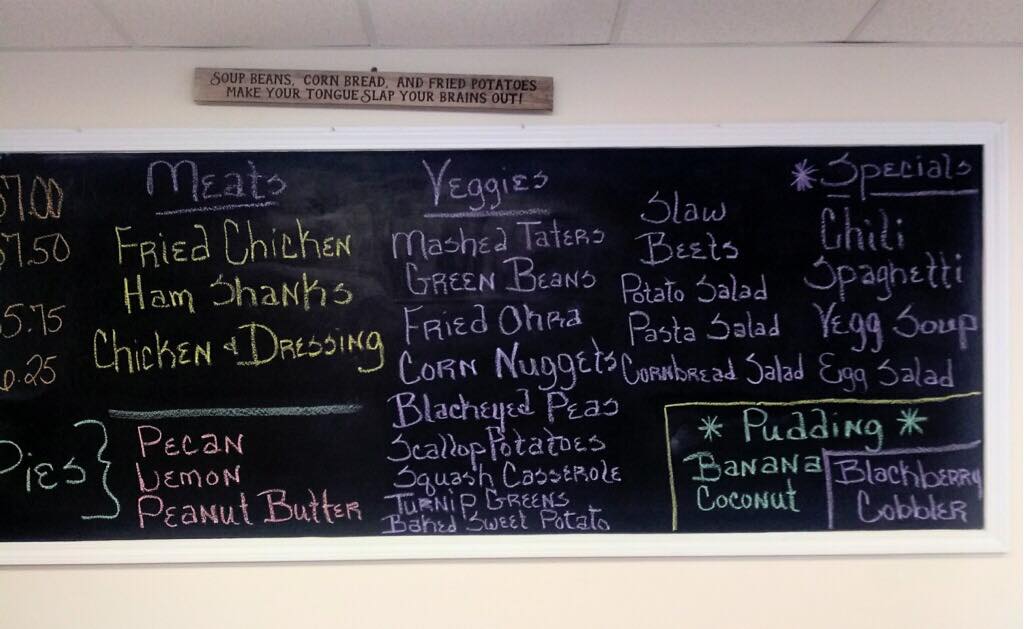 SOUP BEANS, CORN BREAD, AND FRIED POTATOES
MAKE YOUR TONGUE SLAP YOUR BRAINS OUT!
$7.00
$7.50
5.75
6.25
Meats
Fried Chicken
Ham Shanks
Chicken & Dressing
Pies
Pecan
Lemon
Peanut Butter
Veggies
Mashed Taters
Green Beans
Fried Okra
Corn Nuggets
Blackeyed Peas
Scallop Potatoes
Squash Casserole
Turnip Greens
Baked Sweet Potato
Slaw
Beets
Potato Salad
Pasta Salad
Cornbread Salad
*Specials
Chili
Spaghetti
Vegg Soup
Egg Salad
* Pudding *
Banana
Coconut
Blackberry
Cobbler